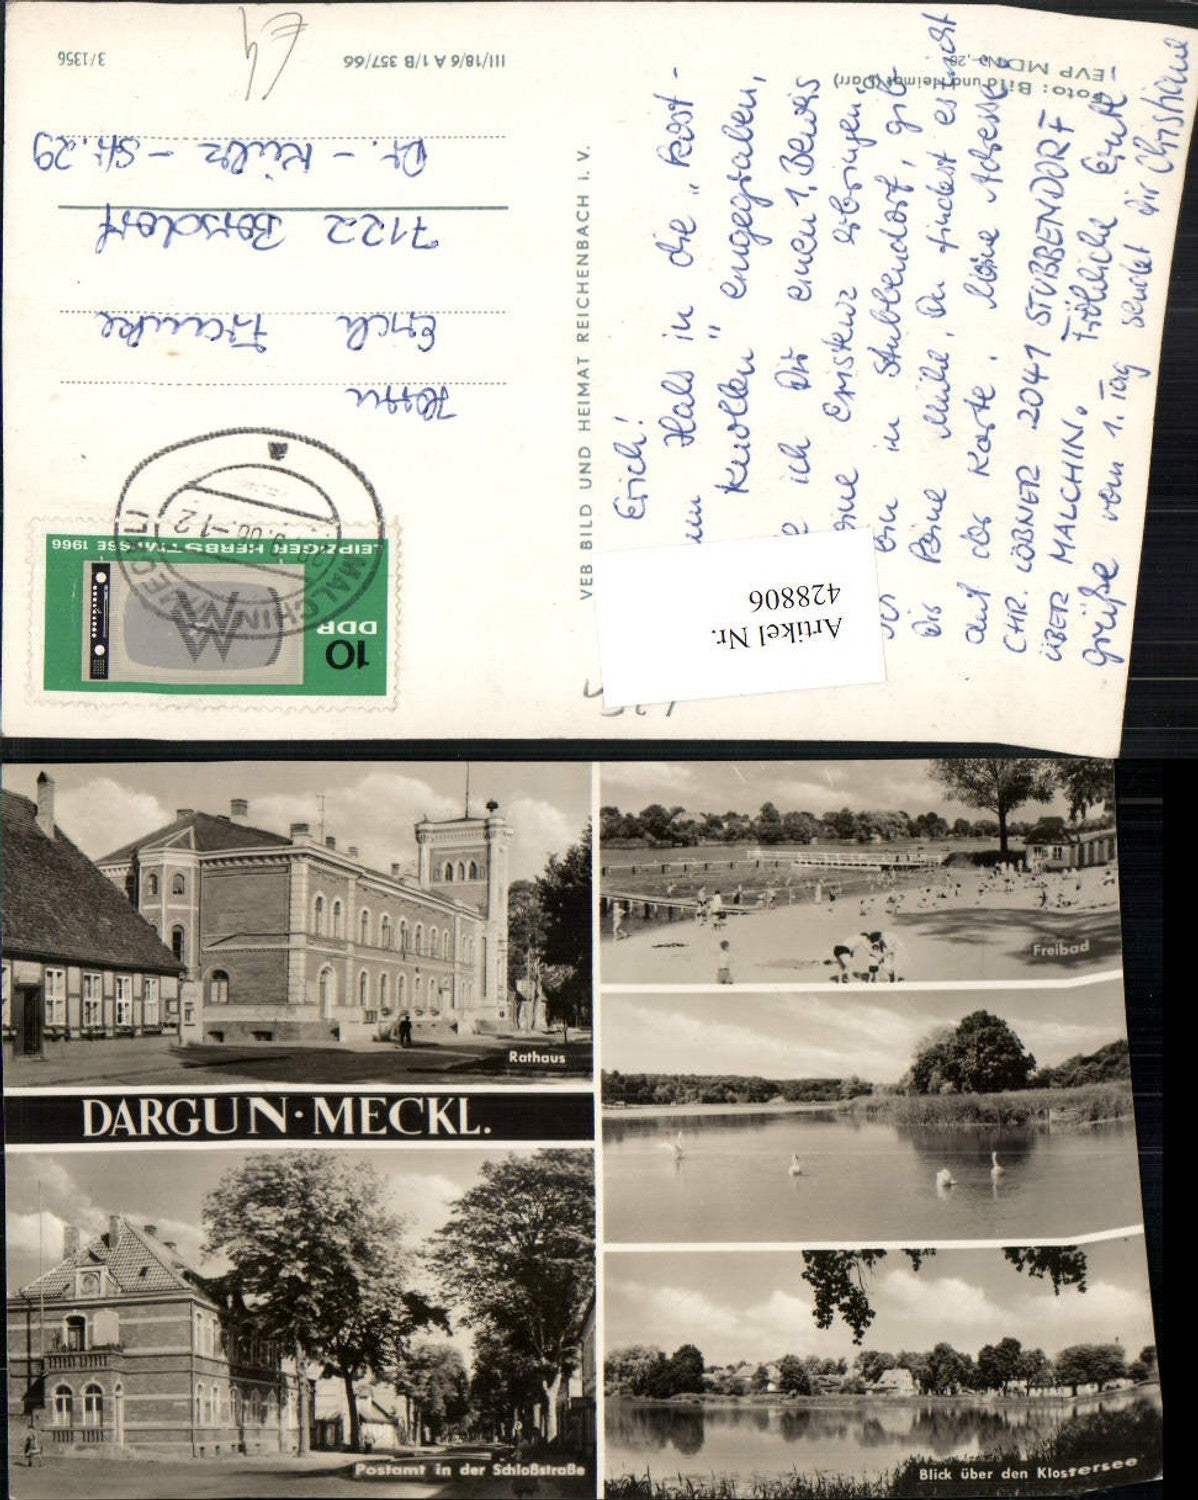 3/1356
III/18/6 A 1/B 357/66
Foto: Bild und Heimat (Darr)
EVP MDN
VEB BILD UND HEIMAT REICHENBACH I. V.
Herrn
Erich Franke
7122 Borsdorf
Dr. - Külz - Str. 29
10
DDR
LEIPZIGER HERBSTMESSE 1966
MALCHIN
Erich!
Hals in die „Rost -
Knollen" eingegraben,
ich Dir einen 1. Beweis
Existenz erbringen.
bin in Stubbendorf, gib
Dir keine Mühe, Du findest es nicht
auf der Karte. Meine Adresse
CHR. LÖBNER 2041 STUBBENDORF
ÜBER MALCHIN. Fröhliche Ernte -
Grüße vom 1. Tag sendet Dir Christiane
Artikel Nr.
428806
Rathaus
DARGUN · MECKL.
Postamt in der Schloßstraße
Freibad
Blick über den Klostersee